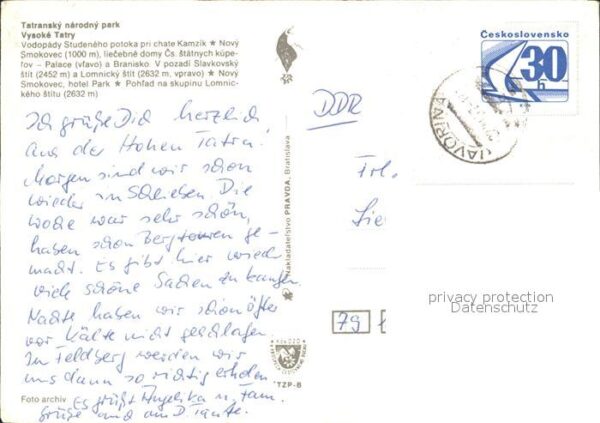 Tatranský národný park
Vysoké Tatry
Vodopády Studeného potoka pri chate Kamzík ★ Nový
Smokovec (1000 m), liečebné domy Čs. štátnych kúpe-
ľov – Palace (vľavo) a Branisko. V pozadí Slavkovský
štít (2452 m) a Lomnický štít (2632 m, vpravo) ★ Nový
Smokovec, hotel Park ★ Pohľad na skupinu Lomnic-
kého štítu (2632 m)
Ich grüße Dich herzlich
aus der Hohen Tatra.
Morgen sind wir schon
wieder in Schlieben. Die
Woche war sehr schön,
haben schon Bergtouren ge-
macht. Es gibt hier wieder
viele schöne Sachen zu kaufen.
Nachts haben wir schon öfter
vor Kälte nicht geschlafen.
In Feldberg werden wir
uns dann so richtig erholen.
Es grüßt Angelika u. Fam.
Grüße und an D. Tante.
Foto archív
Nakladateľstvo PRAVDA, Bratislava
TZP-8
Československo
30
h
JAVORINA
DDR
Frl.
Sie
79
privacy protection
Datenschutz